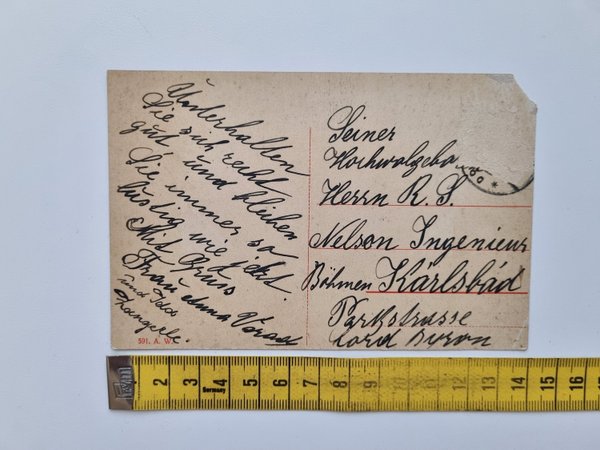 Unterhalten
Sie sich recht
gut und bleiben
Sie immer so
lustig wie jetzt.
Mit Gruss
Frau Anna
und Ida
591. A. W.
Seiner
Hochwolgebo
Herrn R. S.
Nelson Ingenieur
Böhmen Karlsbad
Parkstrasse
Lord Byron
1 2 3 4 Germany 5 6 7 8 9 10 11 12 13 14 15 16